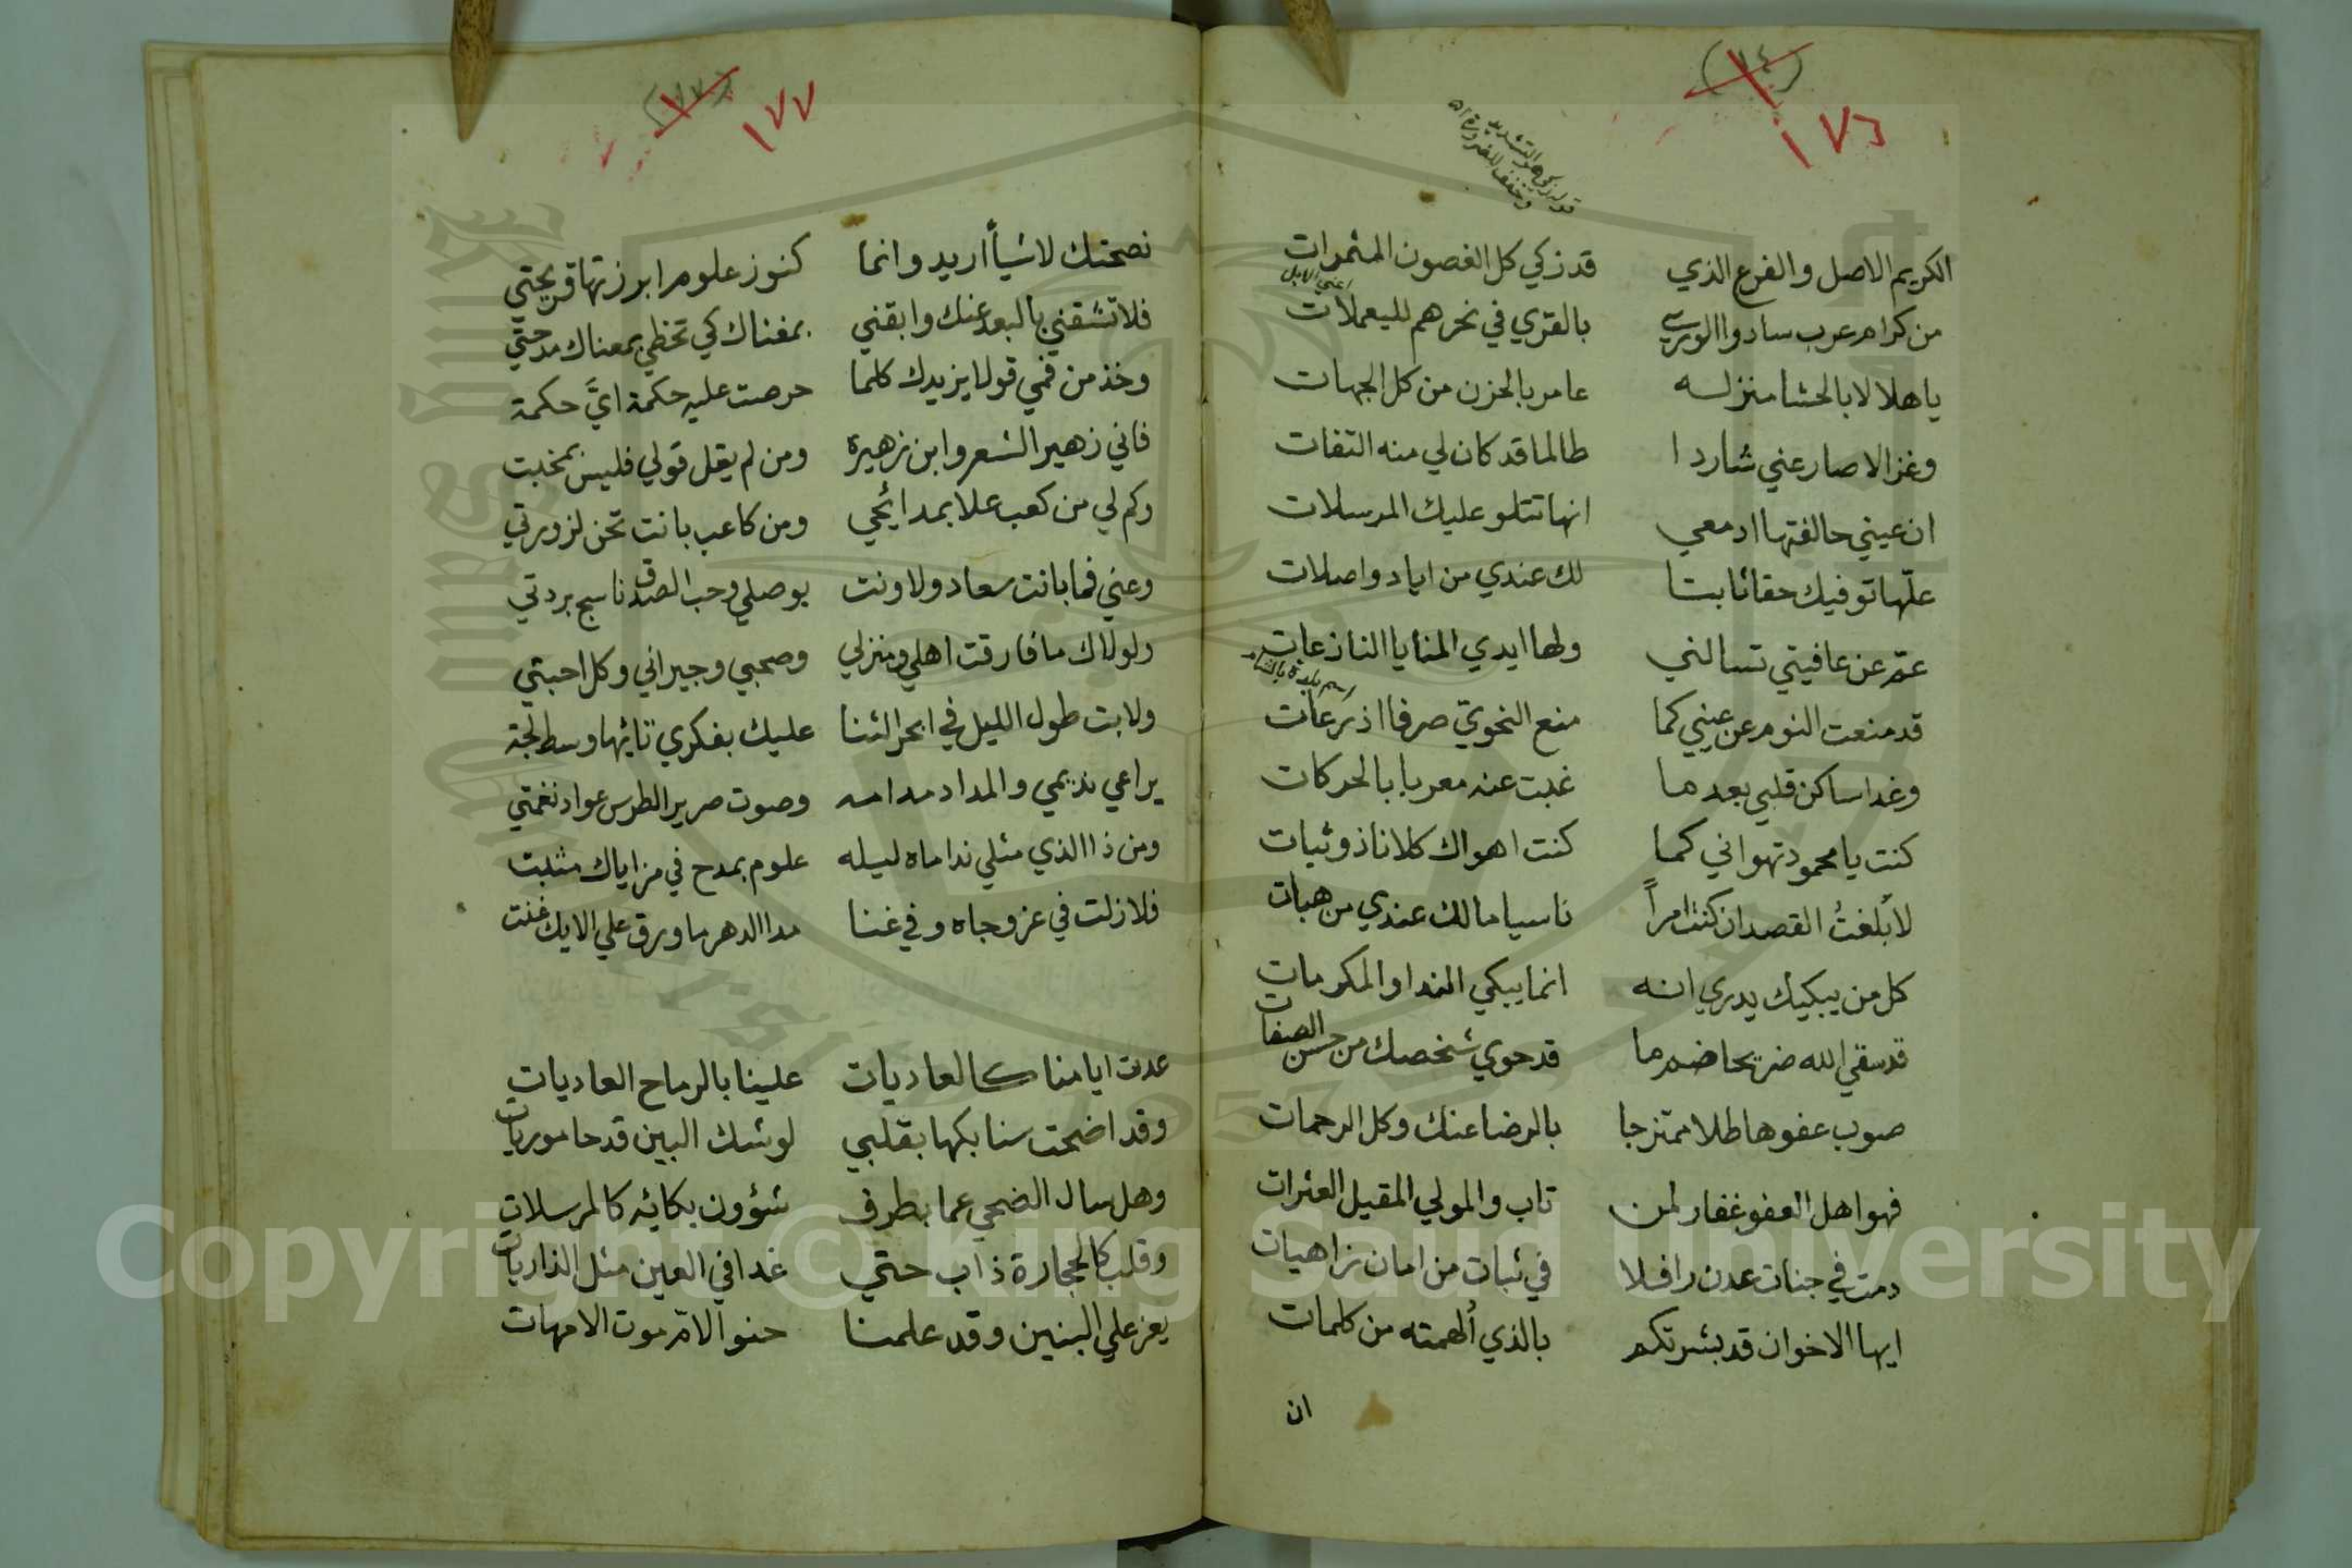 ١٧٦
قد زكي هو بالتشديد
وخفف للضرورة اه
الكريم الاصل والفرع الذي قد زكي كل الغصون المثمرات
اعني الابل
من كرام عرب سادوا الوري بالقري في نحرهم لليعملات
يا هلالا بالحشا منزله عامر بالحزن من كل الجهات
وغزالا صار عني شاردا طالما قد كان لي منه التفات
ان عيني حالفتها ادمعي انها تتلو عليك المرسلات
علّها توفيك حقا ثابتا لك عندي من اياد واصلات
عمّ عن عافيتي تسالني ولها ايدي المنايا النازعات
اسم بلدة بالشام
قد منعت النوم عن عيني كما منع النحويّ صرفا اذرعات
وغدا ساكن قلبي بعدما غبت عنه معربا بالحركات
كنت يا محمود تهواني كما كنت اهواك كلانا ذو ثبات
لا بُلغتُ القصد ان كنت امرأً ناسيا مالك عندي من هبات
كل من يبكيك يدري انه انما يبكي الندا والمكرمات
قد سقي الله ضريحا ضم ما قد حوي شخصك من حسن الصفات
صوب عفو هاطلا ممتزجا بالرضا عنك وكل الرحمات
فهو اهل العفو غفار لمن تاب والمولي المقيل العثرات
دمت في جنات عدن رافلا في ثبات من امان زاهيات
ايها الاخوان قد بشرتكم بالذي أُلهمته من كلمات
ان
١٧٧
نصحتك لا شيأً اريد وانما كنوز علوم ابرزتها قريحتي
فلا تشقني بالبعد عنك وابقني بمغناك كي تحظي بمعناك مدحتي
وخذ من فمي قولا يزيدك كلما حرصت عليه حكمة ايَّ حكمة
فاني زهير الشعر وابن زهيرة ومن لم يقل قولي فليس بمخبت
وكم لي من كعب علا بمدائحي ومن كاعب بانت تحن لزورتي
وعني فما بانت سعاد ولا ونت بوصلي وحب الصدق ناسج بردتي
ولولاك ما فارقت اهلي ومنزلي وصحبي وجيراني وكل احبتي
ولا بت طول الليل في ابحر الثنا عليك بفكري تائها وسط لجة
يراعي نديمي والمداد مدامه وصوت صرير الطرس عواد نغمتي
ومن ذا الذي مثلي نداماه ليله علوم بمدح في مزاياك مثبت
فلا زلت في عز وجاه وفي غنا مدا الدهر ما ورق علي الايك غنت
عدت ايامنا كالعاديات علينا بالرماح العاديات
وقد اضحت سنابكها بقلبي لوشك البين قدحا موريات
وهل سال الضحي عما بطرف شؤون بكائه كالمرسلات
وقلب كالحجارة ذاب حتي غدا في العين مثل الذاريات
يعز علي البنين وقد علمنا حنو الامّ موت الامهات
Copyright © King Saud University